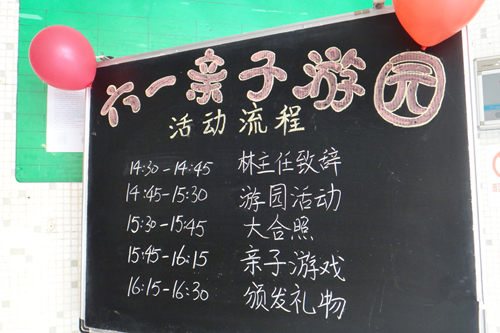 六一亲子游园
活动流程
14:30-14:45 林主任致辞
14:45-15:30 游园活动
15:30-15:45 大合照
15:45-16:15 亲子游戏
16:15-16:30 颁发礼物